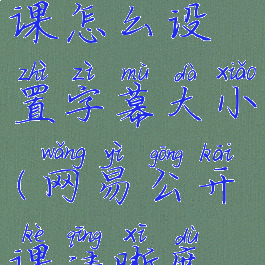 课怎么设
zhì zì mù dà xiǎo
置字幕大小
wǎng yì gōng kāi
(网易公开
kè qīng xī dù
课清晰度